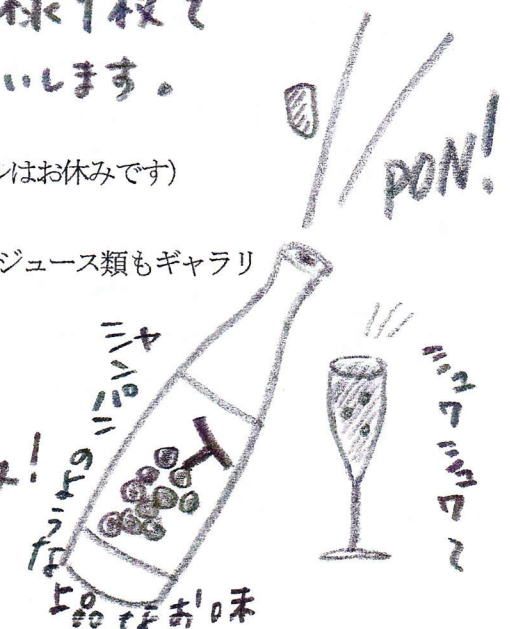 いします。
ンはお休みです）
ジュース類もギャラリ
PON!
シャンパン
のような
上品なお味
シュワシュワ〜